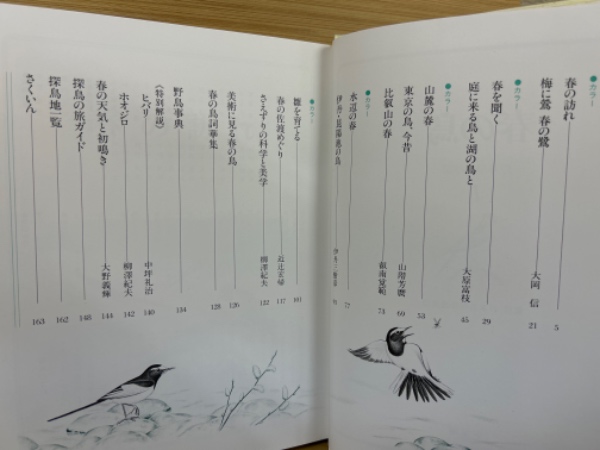 ●カラー
春の訪れ 5
梅に鶯 春の鷺 大岡 信 21
●カラー
春を聞く 29
庭に来る鳥と湖の鳥と 大原富枝 45
●カラー
山麓の春 53
東京の鳥、今昔 60
比叡山の春 叡南覚範 73
●カラー
水辺の春 77
●カラー
雛を育てる 101
春の佐渡めぐり 117
さえずりの科学と美学 柳澤紀夫 122
美術に見る春の鳥 126
春の鳥詞華集 128
野鳥事典 134
《特別解説》
ヒバリ 中坪礼治 140
ホオジロ 柳澤紀夫 142
春の天気と初鳴き 大野義輝 144
探鳥の旅ガイド 148
探鳥地一覧 162
さくいん 163